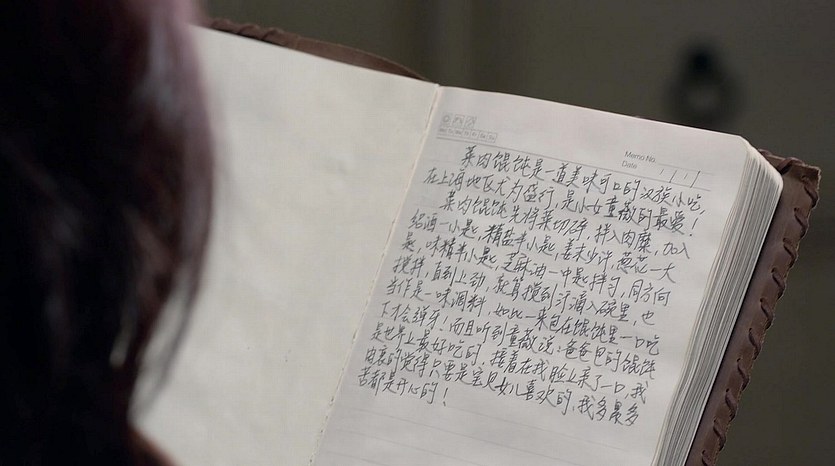 Memo No.
Date / /
Mo Tu We Th Fr Sa Su
菜肉馄饨是一道美味可口的汉族小吃,
在上海地区尤为盛行,是小女童薇的最爱!
菜肉馄饨先将菜切碎,拌入肉糜,加入
绍酒一小匙,精盐半小匙,姜末少许,葱花一大
匙,味精半小匙,芝麻油一中匙拌匀,同方向
搅拌,直到上劲,就算搅到汗滴入碗里,也
当作是一味调料,如此一来包在馄饨里一口吃
下才会弹牙!而且听到童薇说:爸爸包的馄饨
是世界上最好吃的,接着在我脸上来了一口,我
由衷的觉得只要是宝贝女儿喜欢的,我多累多
苦都是开心的!